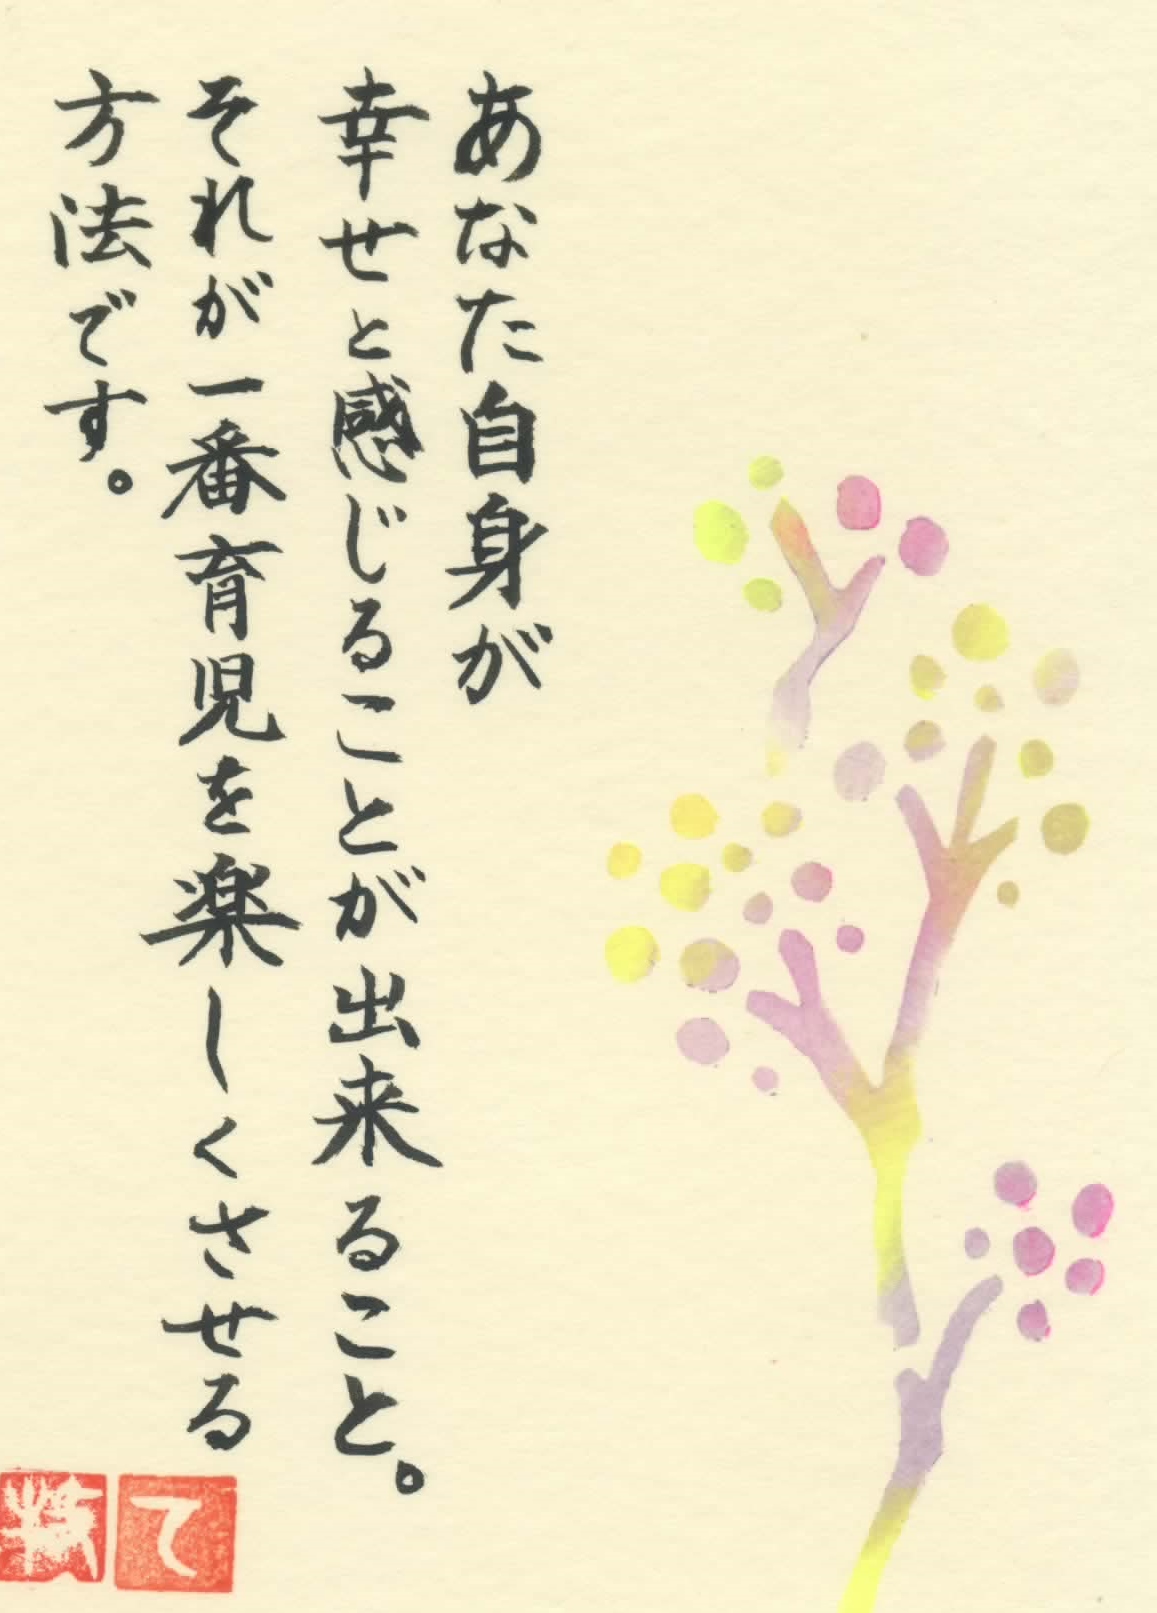 あなた自身が
幸せと感じることが出来ること。
それが一番育児を楽しくさせる
方法です。
て